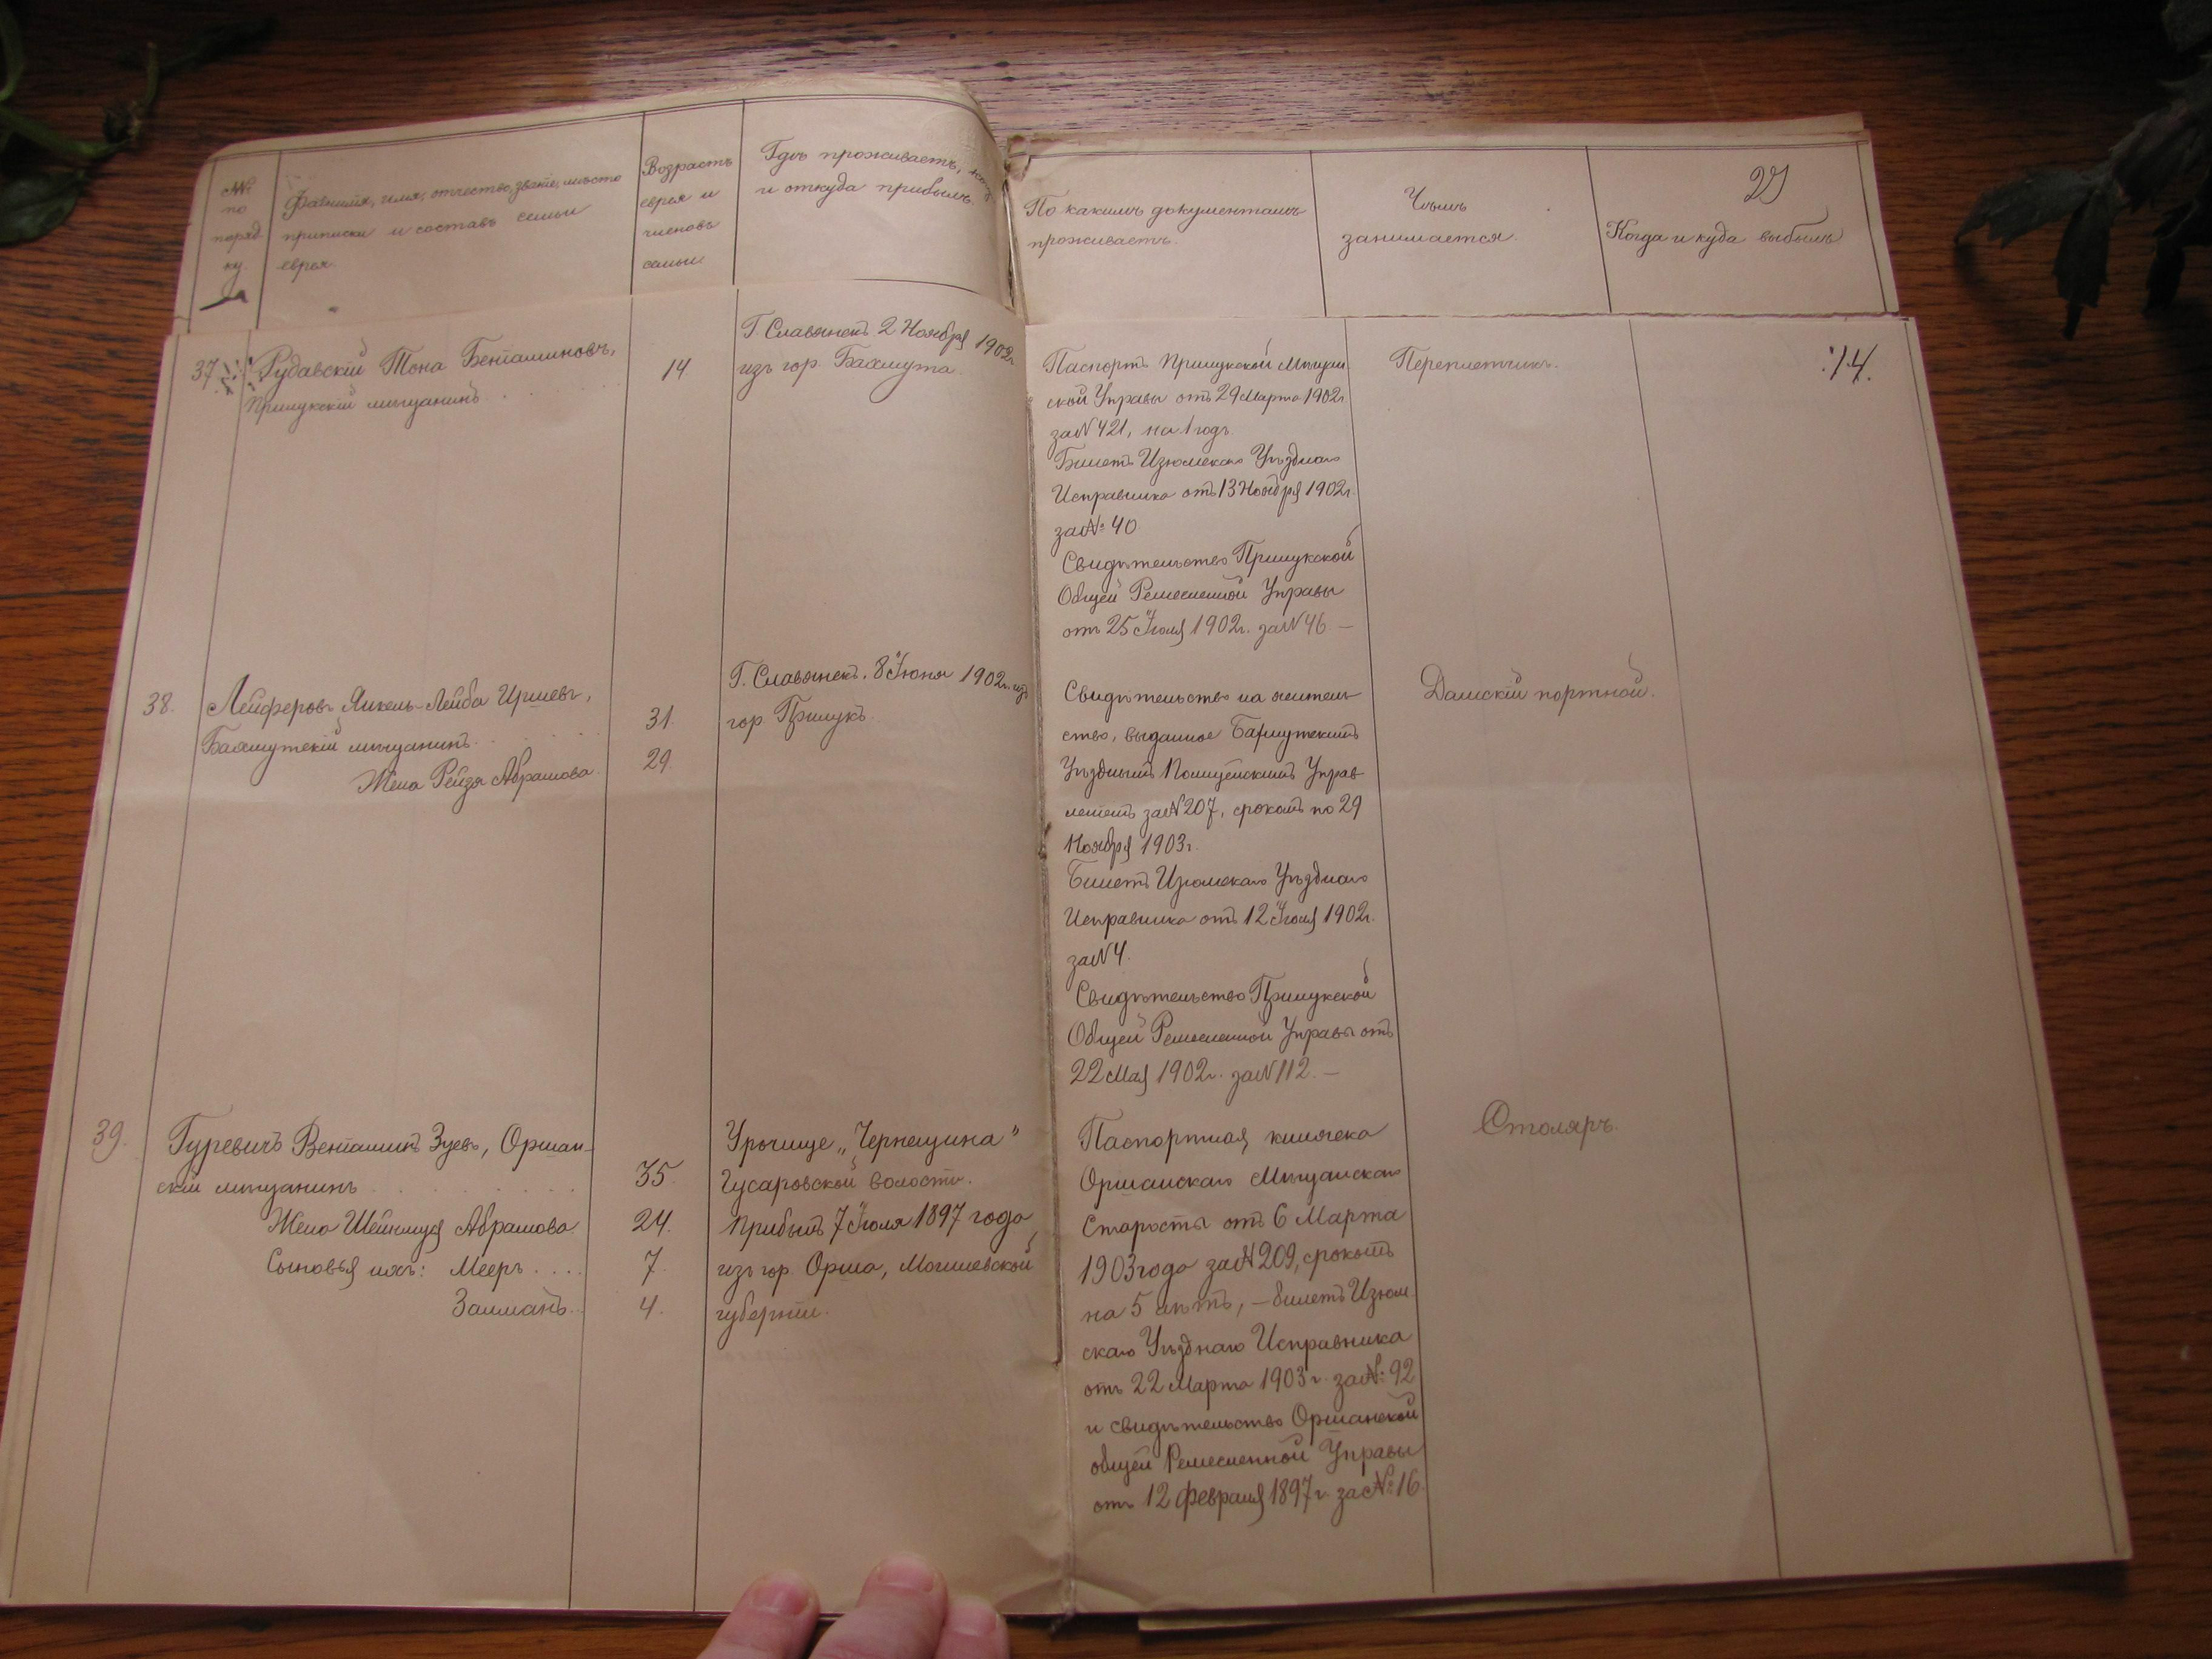 № по поряд- ку
Фамилія, имя, отчество, званіе, мѣсто
приписки и составъ семьи
еврея.
Возрастъ
еврея и
членовъ
семьи.
Гдѣ проживаетъ,
и откуда прибылъ.
По какимъ документамъ
проживаетъ.
Чѣмъ
занимается.
Когда и куда выбылъ
37
Рудавскій Тона Беніаминовъ,
Прилукскій мѣщанинъ . .
14
Г. Славянскъ 2 Ноября 1902г
изъ гор. Бахмута.
Паспортъ Прилукской Мѣщан
ской Управы отъ 29 Марта 1902г
за N 421, на 1 годъ.
Билетъ Изюмскаго Уѣзднаго
Исправника отъ 13 Ноября 1902г.
за № 40
Свидѣтельство Прилукской
Общей Ремесленной Управы
отъ 25 Іюля 1902г. за N 46 —
Переплетчикъ.
14.
38.
Лейферовъ Янкель-Лейба Иршевъ,
Бахмутскій мѣщанинъ . . . . .
Жена Рейза Абрамова.
31.
29.
Г. Славянскъ. 8 Іюня 1902г. изъ
гор. Прилукъ.
Свидѣтельство на житель
ство, выданное Бахмутскимъ
Уѣзднымъ Полицейскимъ Управ-
леніемъ за N 207, срокомъ по 29
Ноября 1903г.
Билетъ Изюмскаго Уѣзднаго
Исправника отъ 12 Іюля 1902г.
за N 4.
Свидѣтельство Прилукской
Общей Ремесленной Управы отъ
22 Мая 1902г. за N 112. —
Дамскій портной.
39.
Гуревичъ Веніаминъ Зуевъ, Оршан-
скій мѣщанинъ . . . . . . .
Жена Абрамова.
Сыновья ихъ: Мееръ . . . .
Залманъ . .
35.
24.
7.
4.
Урочище „Чернещина”
Гусаровской волости.
Прибылъ 7 Іюля 1897 года
изъ гор. Орша, Могилевской
губерніи.
Паспортная книжка
Оршанскаго Мѣщанскаго
Старосты отъ 6 Марта
1903 года за № 209, срокомъ
на 5 лѣтъ, — билетъ Изюм-
скаго Уѣзднаго Исправника
отъ 22 Марта 1903 г. за №: 92
и свидѣтельство Оршанской
общей Ремесленной Управы
отъ 12 Февраля 1897 г. за № 16.
Столяръ.